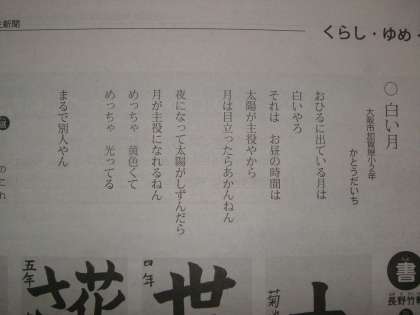 生新聞
くらし・ゆめ・
○ 白い月
大阪市加賀屋小2年
かとうだいち
おひるに出ている月は
白いやろ
それは お昼の時間は
太陽が主役やから
月は目立ったらあかんねん
夜になって太陽がしずんだら
月が主役になれるねん
めっちゃ 黄色くて
めっちゃ 光ってる
まるで別人やん
書
長野竹
菊
四年
世
五年
花